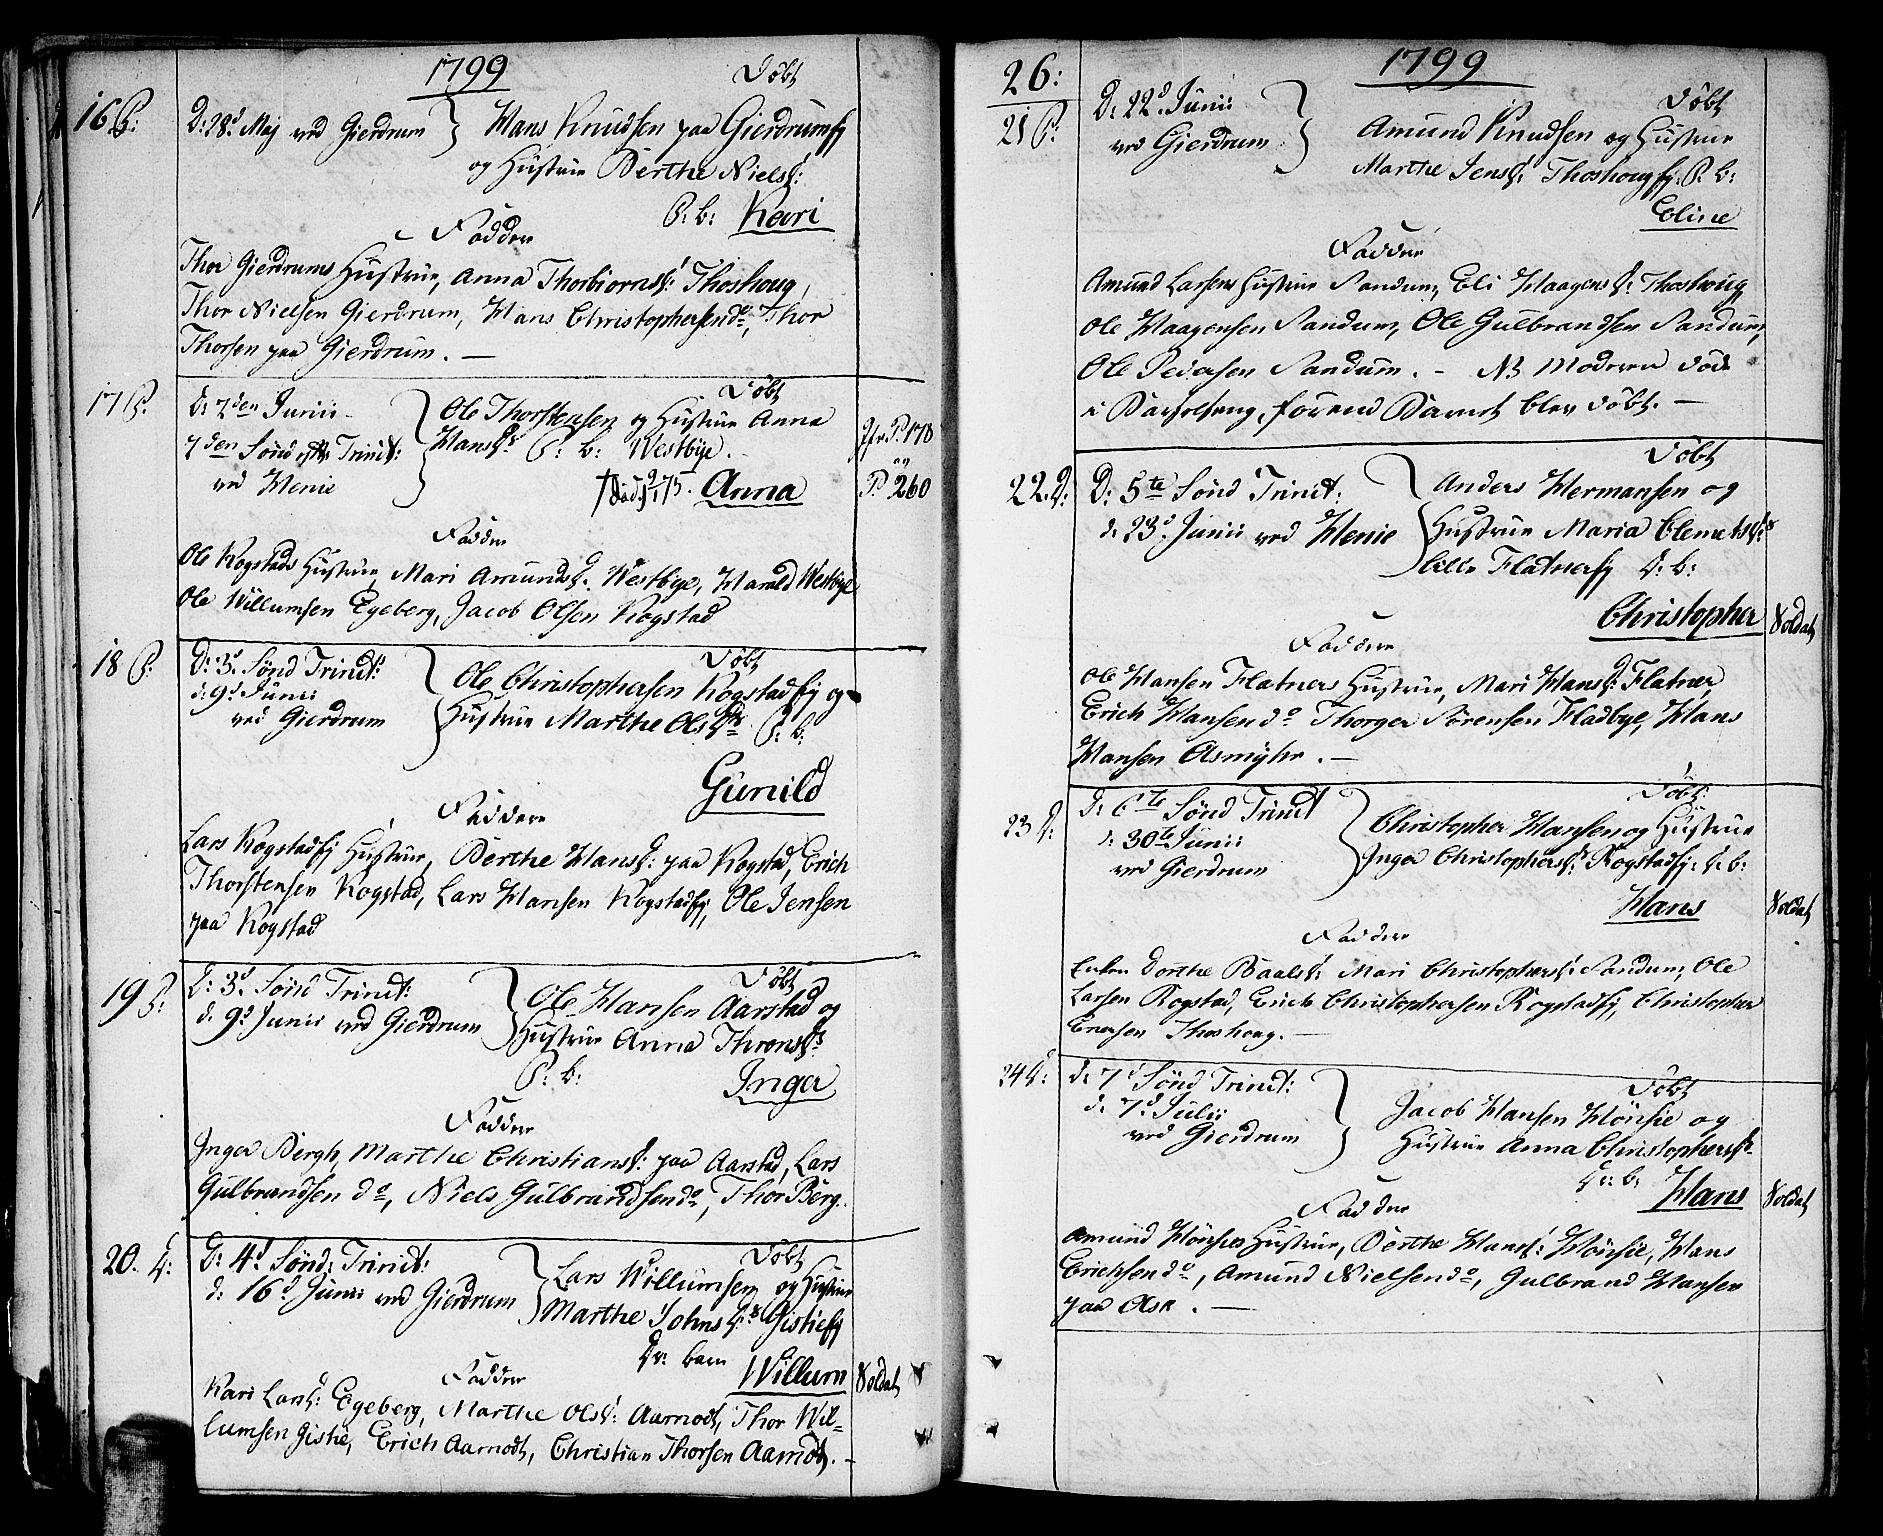 1799
Døbt
16 P: D: 28d Maj ved Gierdrum } Hans Knudsen paa Gierdrumsej
og Hustrue Berthe Nielsd:
P: b: Kari
Faddere
Thor Gierdrums Hustrue, Anna Thorbiornsd: Thoshoug,
Thor Nielsen Gierdrum, Hans Christophersen do, Thor
Thorsen paa Gierdrum. —
17 P. d: 2den Junii Døbt
Ole Thorstensen og Hustrue Anna
2den Sønd eft: Trinit: Hansdr P: b: Westbye. Jfr. P. 178
ved Henie Anna P. 260
Faddere
Ole Kogstads Hustrue, Mari Amundsd. Westbye, Harald Westbye
Ole Willumsen Egeberg, Jacob Olsen Kogstad
18 P: D: 3d Sønd Trinit: Døbt
d: 9d Junii Ole Christophersen Kogstadej og
ved Gierdrum Hustrue Marthe Olsdr P: b:
Gunild
Faddere
Lars Kogstadej Hustrue, Berthe Hansd: paa Kogstad, Erich
Thorstensen Kogstad, Lars Hansen Kogstadej, Ole Jensen
paa Kogstad
19 P: D: 3d Sønd Trinit: Døbt
d. 9d Junii ved Gierdrum Ole Hansen Aarstad og
Hustrue Anna Thronsdr
P: b: Inger
Faddere
Inger Bergh, Marthe Christiansd: paa Aarstad, Lars
Gulbrandsen do, Niels Gulbrandsen do, Thor Berg.
20. D: D: 4d Sønd: Trinit: Døbt
d: 16d Junii ved Gierdrum Lars Willumsen og Hustrue
Marthe Johnsdr Gistieej
Dr: barn Willum Soldat
Faddere
Kari Larsd: Egeberg, Marthe Olsd: Aamodt, Thor Wil-
lumsen Gistie, Erich Aamodt, Christian Thorsen Aamodt. —
26: 1799
Døbt
21 P: D: 22d Junii Amund Knudsen og Hustrue
ved Gierdrum Marthe Jensd: Thoshougej: P. b:
Eline
Faddere
Amund Larsens Hustrue Sandum, Eli Haagensd: Thoshoug
Ole Haagensen Sandum, Ole Gulbrandsen Sandum,
Ole Pedersen Sandum. - NB Moderen døde
i Barselseng, førend Barnet blev døbt. —
22. D: D: 5te Sønd Trinit: Døbt
d: 23d Junii ved Henie Anders Hermansen og
Hustrue Maria Clemetsdr
lille Flatnerej D: b:
Christopher Soldat
Faddere
Ole Hansen Flatners Hustrue, Mari Hansd: Flatner
Erich Hansen do Thorger Sørensen Fladbye, Hans
Hansen Asmyhr. —
23 D: d: 6te Sønd Trinit Døbt:
d: 30te Junii Christopher Hansen og Hustrue
ved Gierdrum Inger Christophersdr Kogstadej: D: b:
Hans Soldat
Faddere
Enken Dorthe Paalsd: Mari Christophersd: Sandum, Ole
Larsen Kogstad, Erich Christophersen Kogstadej, Christopher
Enersen Thoshoug. —
24 D: d: 7d Sønd Trinit: Døbt
d: 7d Julii Jacob Hansen Hønsie og
ved Gierdrum Hustrue Anna Christophersd
Dr: b: Hans Soldat
Faddere
Amund Hønsies Hustrue, Berthe Hansd: Hønsie, Hans
Erichsen do, Amund Nielsen do, Gulbrand Hansen
paa Ask. —